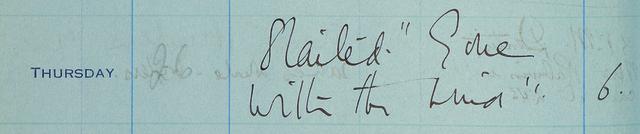 Started "Gone
THURSDAY
with the Wind". 6.